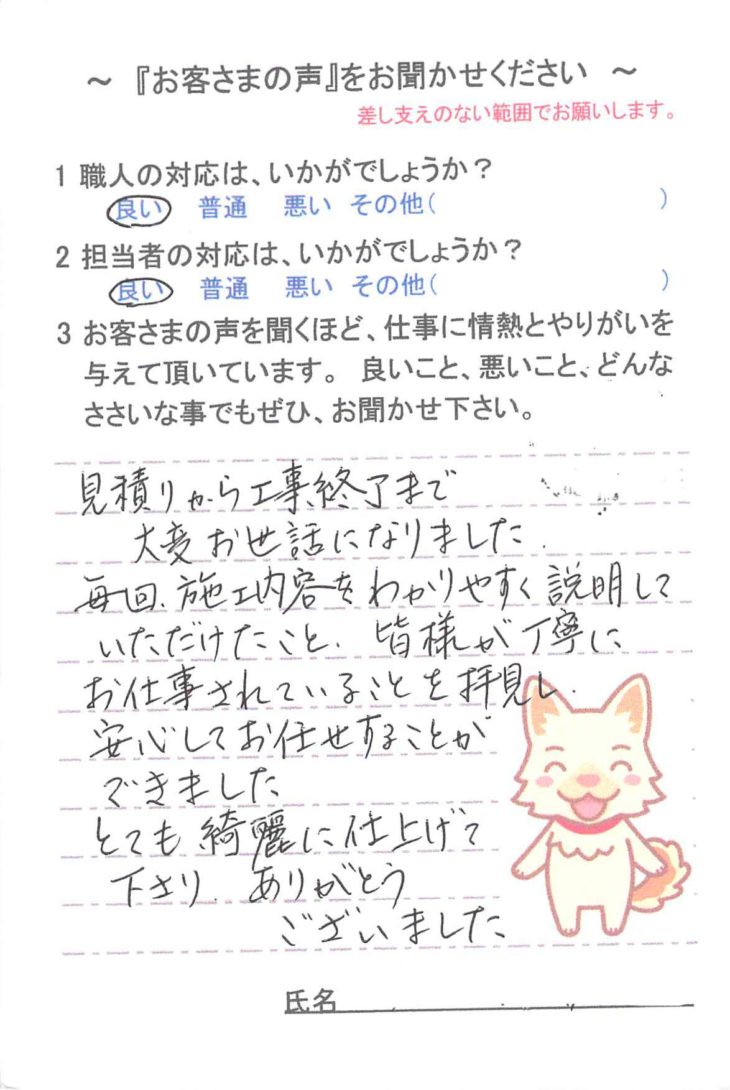 ～ 『お客さまの声』をお聞かせください ～
差し支えのない範囲でお願いします。
1 職人の対応は、いかがでしょうか？
良い 普通 悪い その他( )
2 担当者の対応は、いかがでしょうか？
良い 普通 悪い その他( )
3 お客さまの声を聞くほど、仕事に情熱とやりがいを
与えて頂いています。 良いこと、悪いこと、どんな
ささいな事でもぜひ、お聞かせ下さい。
見積りから工事終了まで
大変お世話になりました.
毎回、施工内容をわかりやすく説明して
いただけたこと、皆様が丁寧に
お仕事されていることを拝見し、
安心してお任せすることが
できました
とても綺麗に仕上げて
下さり、ありがとう
ございました
氏名